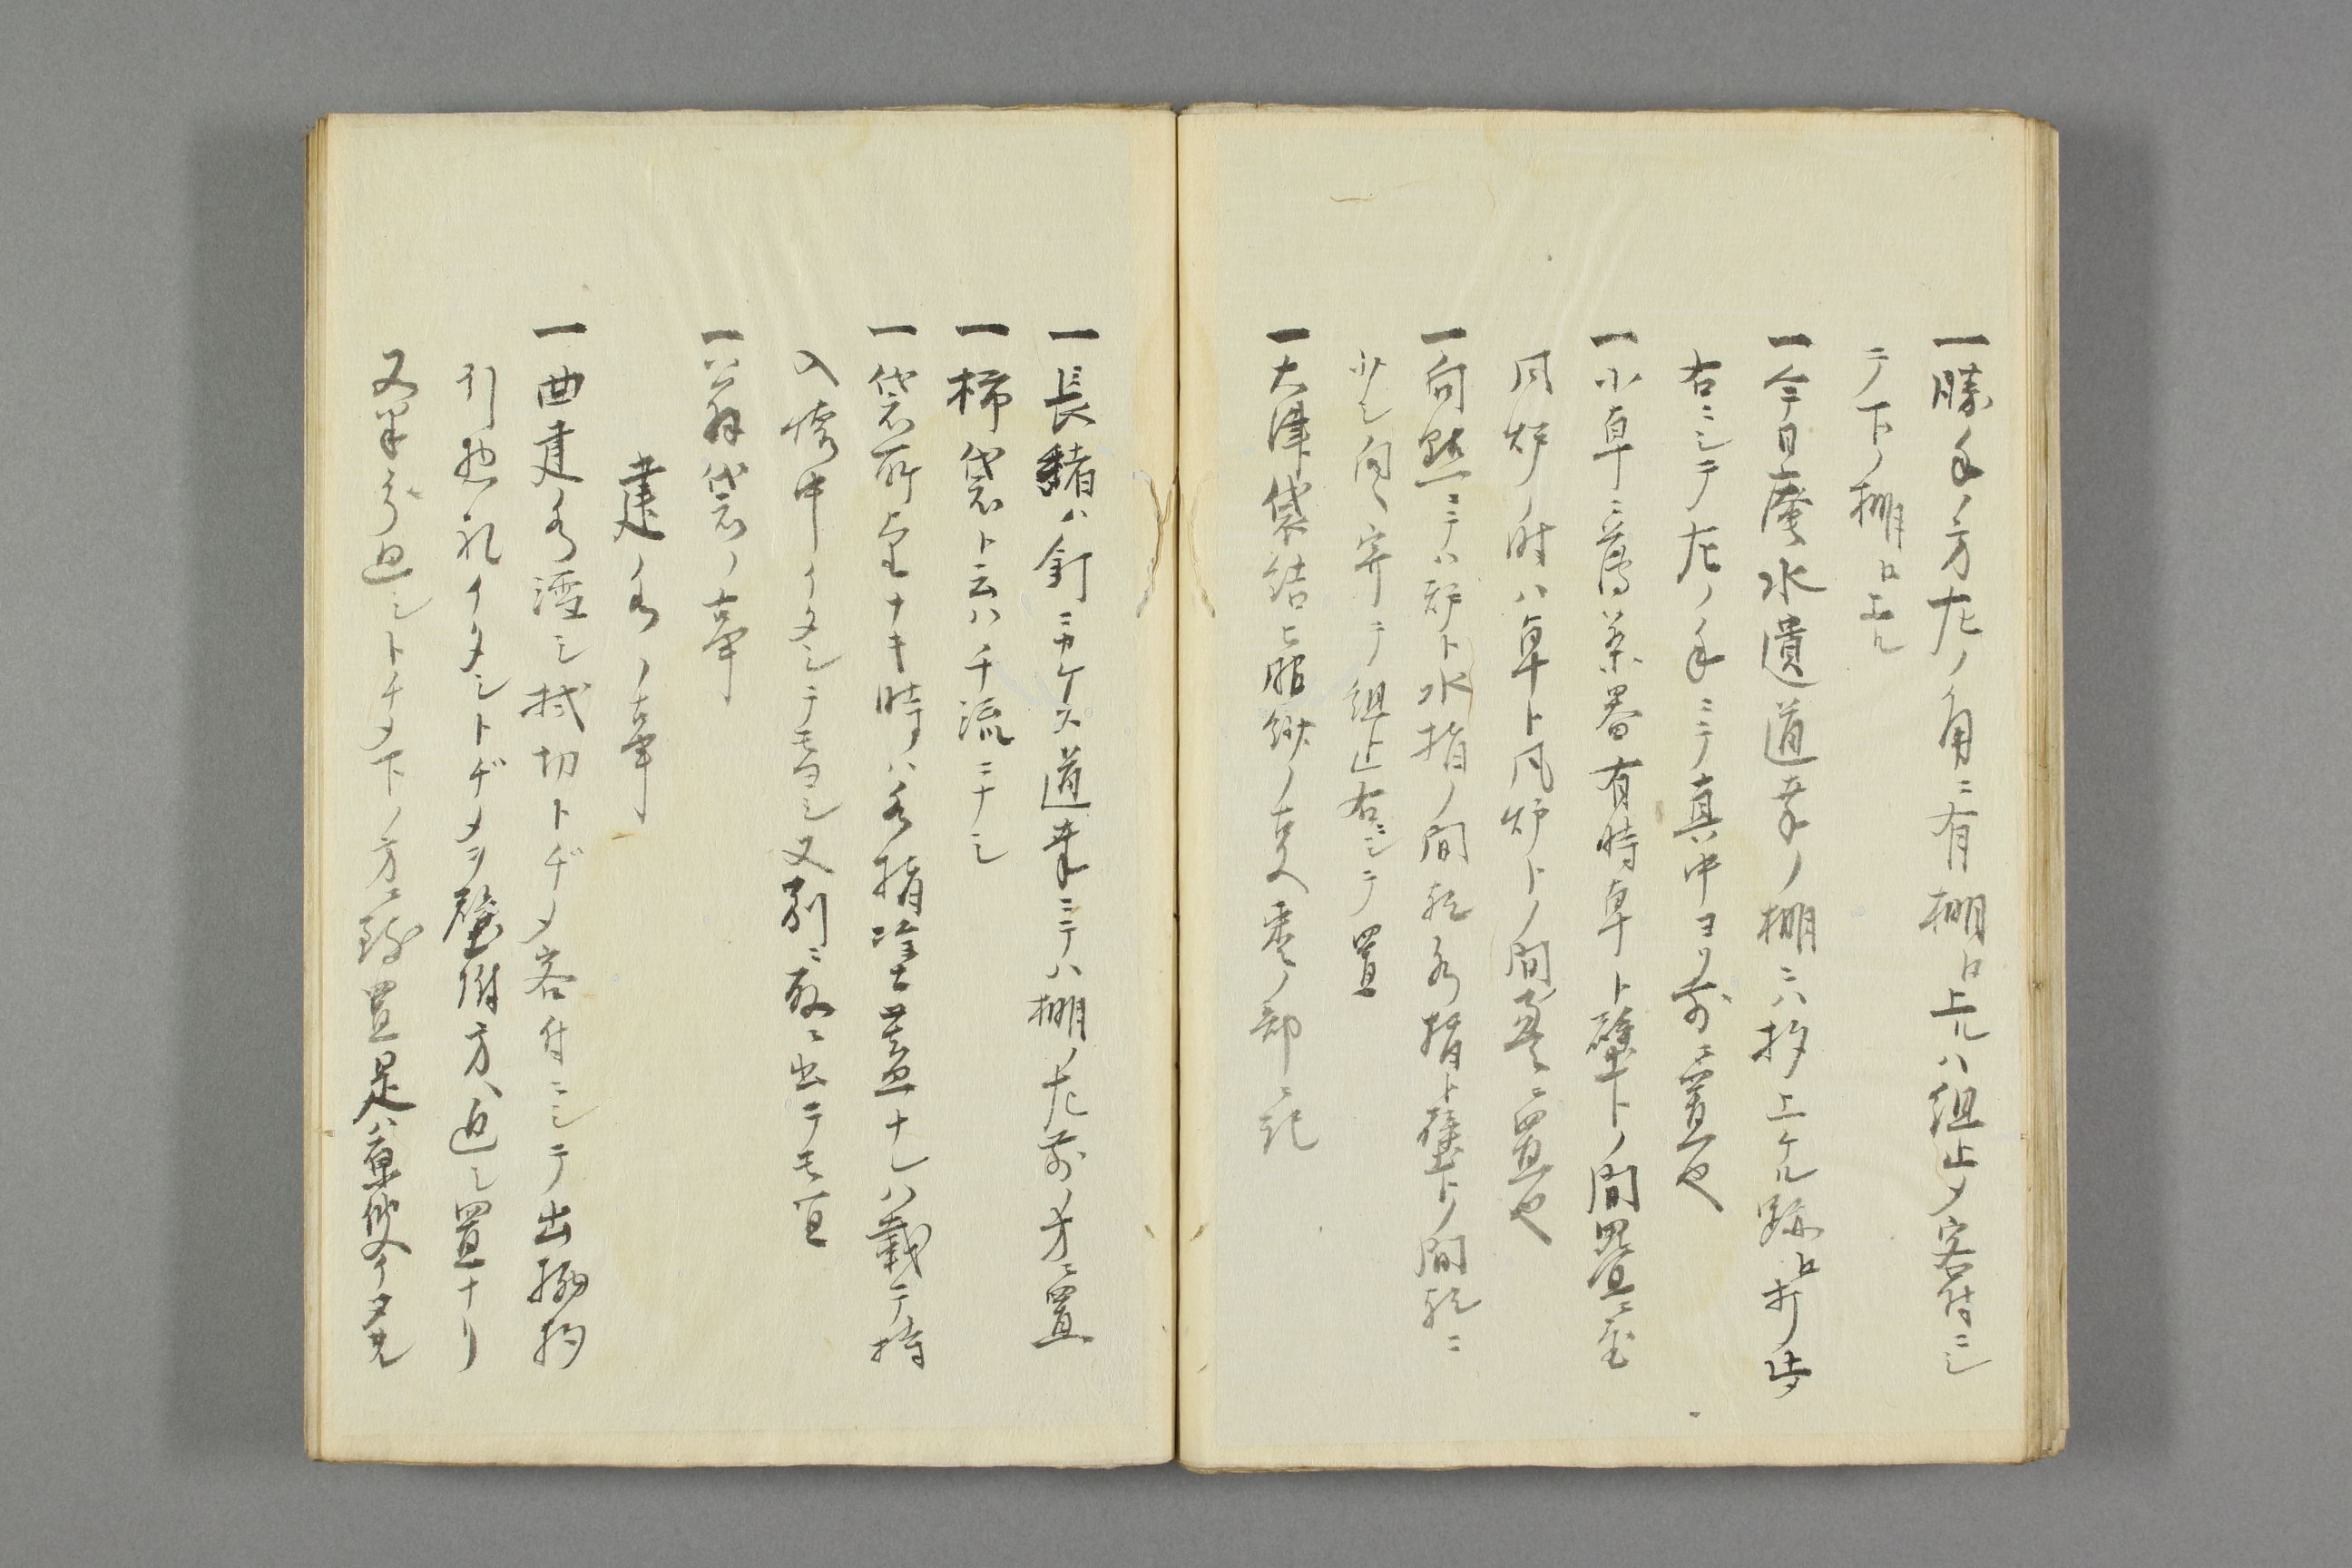 一勝手ノ方左ノ角ニ有棚ヘ上ルハ組止メ客付ニシ
テ下ノ棚ヘ上ル
一今日庵水遣道幸ノ棚ニハ上ケル跡ヘ折止
右ニシテ左ノ手ニテ真中ヨリ前ニ置也
一小卓ニ薄茶器有時卓ト壁トノ間畳ニ置
風炉ノ時ハ卓ト風炉トノ間畳ニ置也
一向点ニテハ炉ト水指ノ間水指ト壁トノ間ニ
少シ向ヘ寄テ組止右ニシテ置
一大津袋結ヒ服紗ノ棗ノ部ニ記
一長緒ハ釘ニカケス道幸ニテハ棚ノ左前ノ方ニ置
一柿袋ト云ハ千流ニナシ
一袋所望ナキ時ハ水指塗蓋ナレハ載テ持
入懐中イタシテモヨシ又別ニ出テモ宜
一袋ノ事
建水ノ事
一曲建水湿シ拭切トヂメ客付ニシテ出柄杓
引イタシトヂメヲ壁附方ヘ廻シ置ナリ
又半分廻シトチメ下ノ方ニ置是ハ